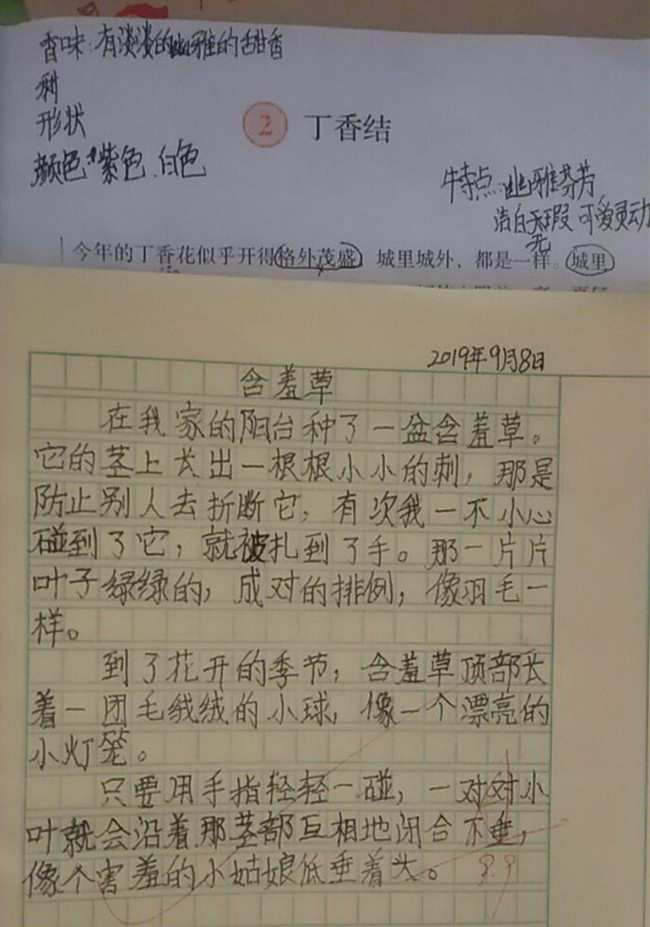 香味:有淡淡的幽雅的甜香
刺
形状
颜色:紫色、白色
2 丁香结
特点:幽雅芬芳
洁白无瑕 可爱灵动
无
今年的丁香花似乎开得格外茂盛,城里城外、都是一样。城里
2019年9月8日
含羞草
在我家的阳台种了一盆含羞草。
它的茎上长出一根根小小的刺,那是
防止别人去折断它,有次我一不小心
碰到了它,就被扎到了手。那一片片
叶子绿绿的,成对的排例,像羽毛一
样。
到了花开的季节,含羞草顶部长
着一团毛绒绒的小球,像一个漂亮的
小灯笼。
只要用手指轻轻一碰,一对对小
叶就会沿着那茎部互相地闭合下垂,
像个害羞的小姑娘低垂着头。